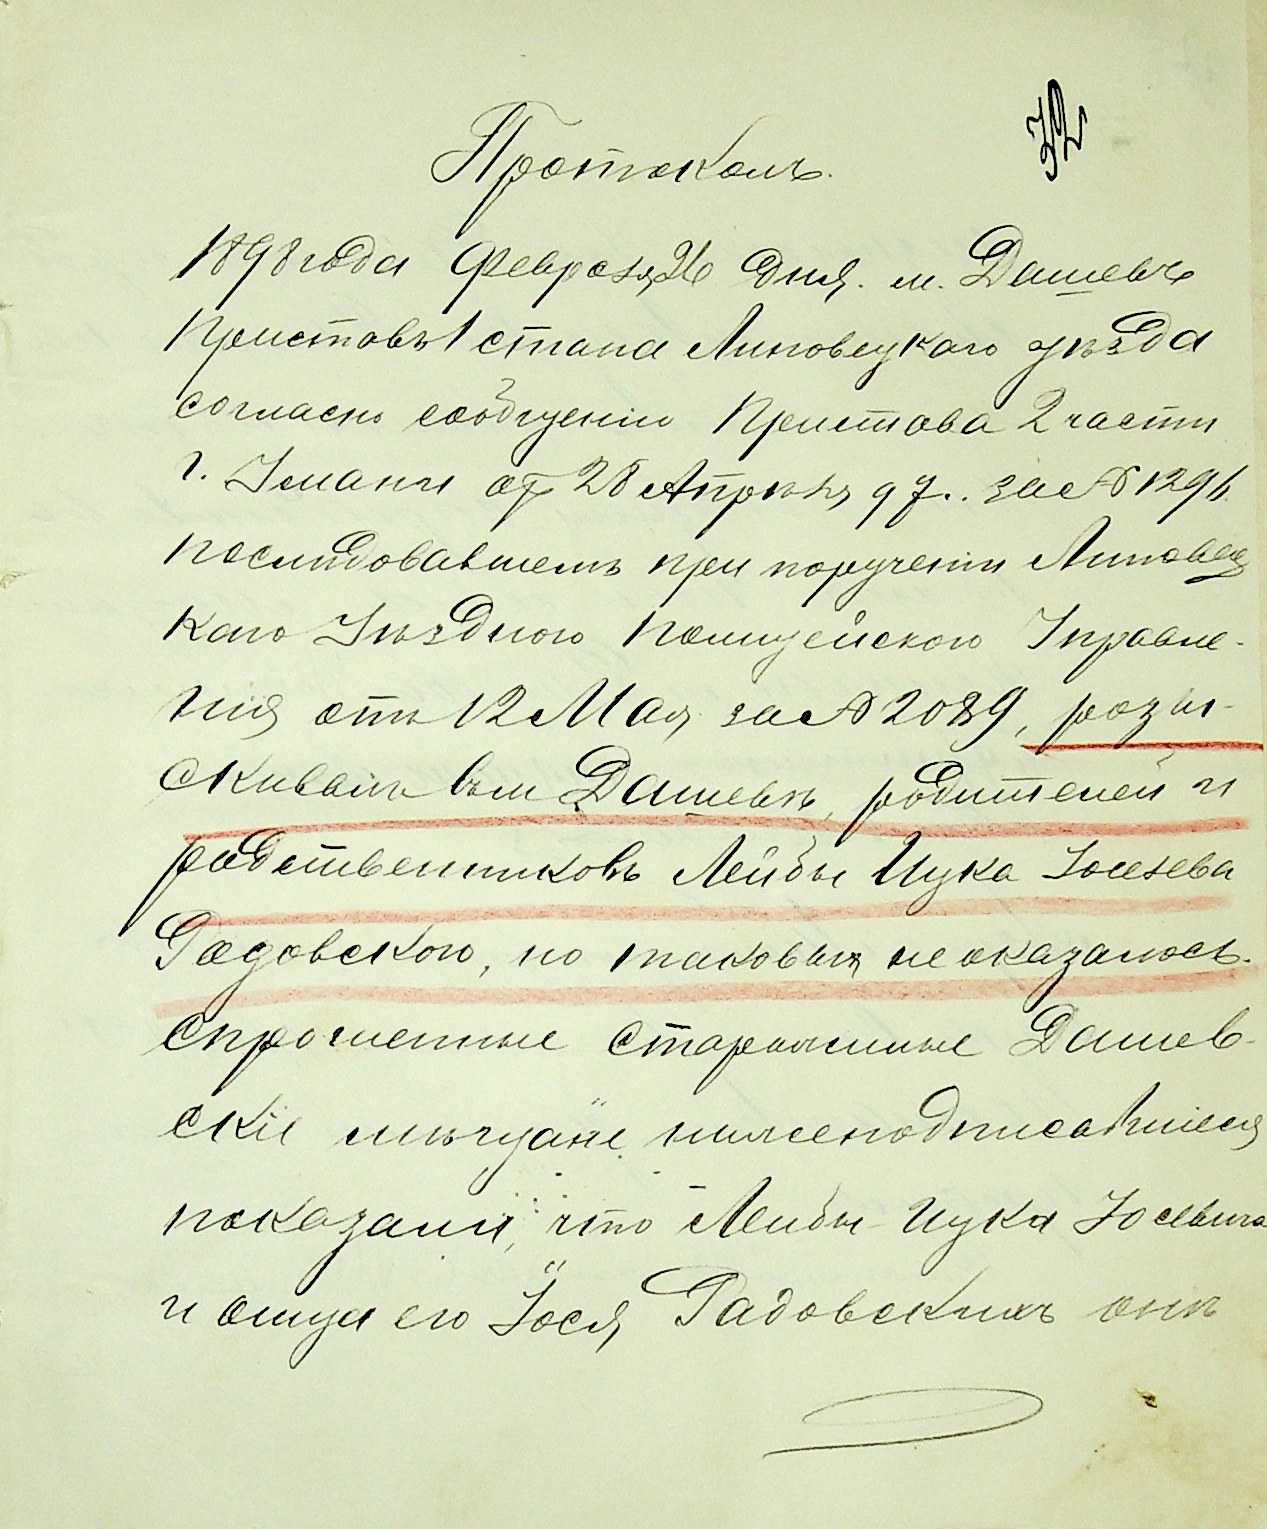 32
Протоколъ.
1898 года Февраля 26 дня. м. Дашевъ
Приставъ 1 стана Липовецкаго уѣзда
согласно сообщенію Пристава 2 части
г. Умани отъ 28 Апрѣля 97 г. за № 1291.
послѣдовавшемъ при порученіи Липовец
каго Уѣзднаго Полицейскаго Управле-
нія отъ 12 Мая за № 2089, разы-
скивалъ въ м. Дашевѣ, родителей и
родственниковъ Лейбы Ицка Іосева
Радовского, но таковыхъ не оказалось.
спрошенные старожилые Дашев-
скіе мѣщане нижеподписавшіеся
показали, что Лейбы-Ицка Іосевича
и отца его Іося Радовскихъ они